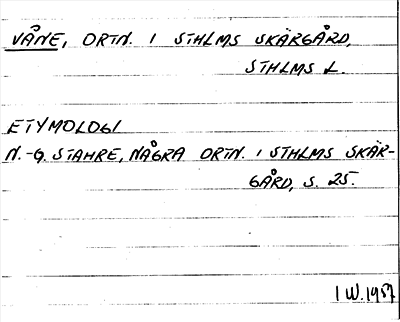 VÅNE, ORTN. I STHLMS SKÄRGÅRD,
STHLMS L.
ETYMOLOGI
N.-G. STAHRE, NÅGRA ORTN. I STHLMS SKÄR-
GÅRD, S. 25.
I W. 1957